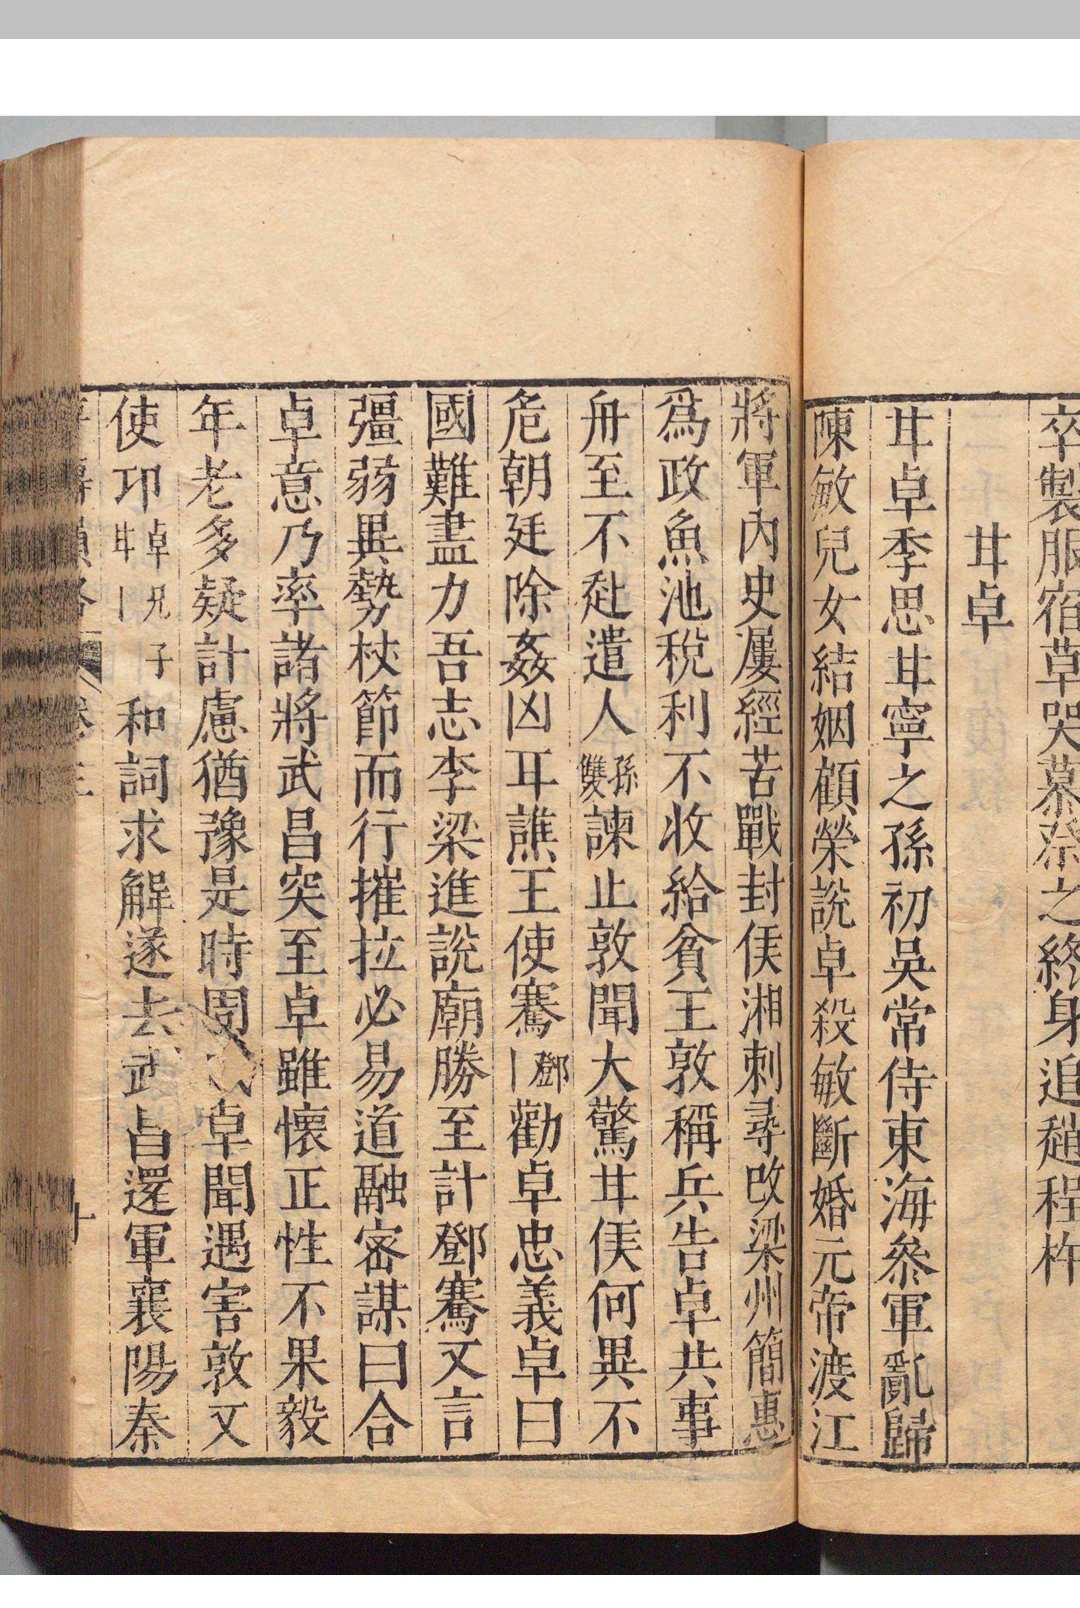 卒製服宿草哭慕祭之終身追趙程杵
甘卓
甘卓季思甘寧之孫初吳常侍東海參軍亂歸
陳敏兒女結姻顧榮說卓殺敏斷婚元帝渡江
將軍內史屢經苦戰封侯湘刺尋改梁州簡惠
爲政魚池稅利不收給貧王敦稱兵告卓共事
舟至不赴遣人孫雙諫止敦聞大驚甘侯何異不
危朝廷除姦凶耳譙王使騫鄧丨勸卓忠義卓曰
國難盡力吾志李梁進說廟勝至計鄧騫又言
彊弱異勢杖節而行摧拉必易道融密謀曰合
卓意乃率諸將武昌突至卓雖懷正性不果毅
年老多疑計慮猶豫是時周卓聞遇害敦又
使卬卓兄子甘丨和詞求解遂去武昌還軍襄陽秦
卷三
十